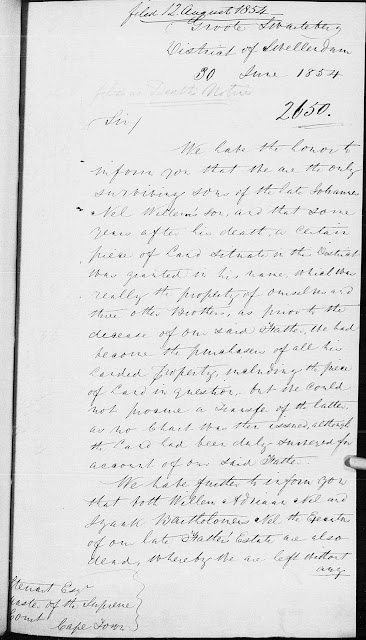 filed 12 August 1854
Groote Swarteberg
District of Swellendam
30 June 1854
Death Notice
2650.
Sir/
We have the honor to
inform you that we are the only
surviving sons of the late Johannes
Nel Willem son, and that some
years after his death, a certain
piece of Land situate in the District
was granted in his name, which was
really the property of ourselves and
three other Brothers, as prior to the
decease of our said Father, we had
become the purchasers of all his
landed property, including the piece
of Land in question, but we could
not procure a Transfer of the latter,
as no Chart was then issued, although
the Land had been duly surveyed for
account of our said Father.
We have further to inform you
that both Willem Adriaan Nel and
Izaak Bartholomeus Nel the Executors
of our late Father's Estate are also
dead, whereby we are left without
any
Steuart Esqr
Master of the Supreme
Court
Cape Town